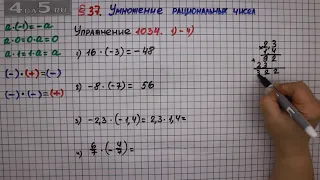 4 da 5.RU
§37. Умножение рациональных чисел
a·(-1)=-a
a·0=0·a=0
a·1=1·a=a
(-)·(+)=(-)
(-)·(-)=(+)
Упражнение 1034. 1)-4)
1) 16·(-3)=-48
2) -8·(-7)= 56
3) -2,3·(-1,4)=2,3·1,4=
4) 6/7·(-4/9)=